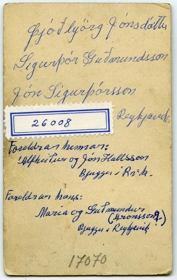 Þjóðbjörg Jónsdóttir
Sigurþór Guðmundsson
Jón Sigurþórsson
Reykjavík
26008
Foreldrar hennar:
og Jón Hallsson
Bjuggu í
Foreldrar hans:
María og Guðmundur
Bjuggu í Reykjavík
17070